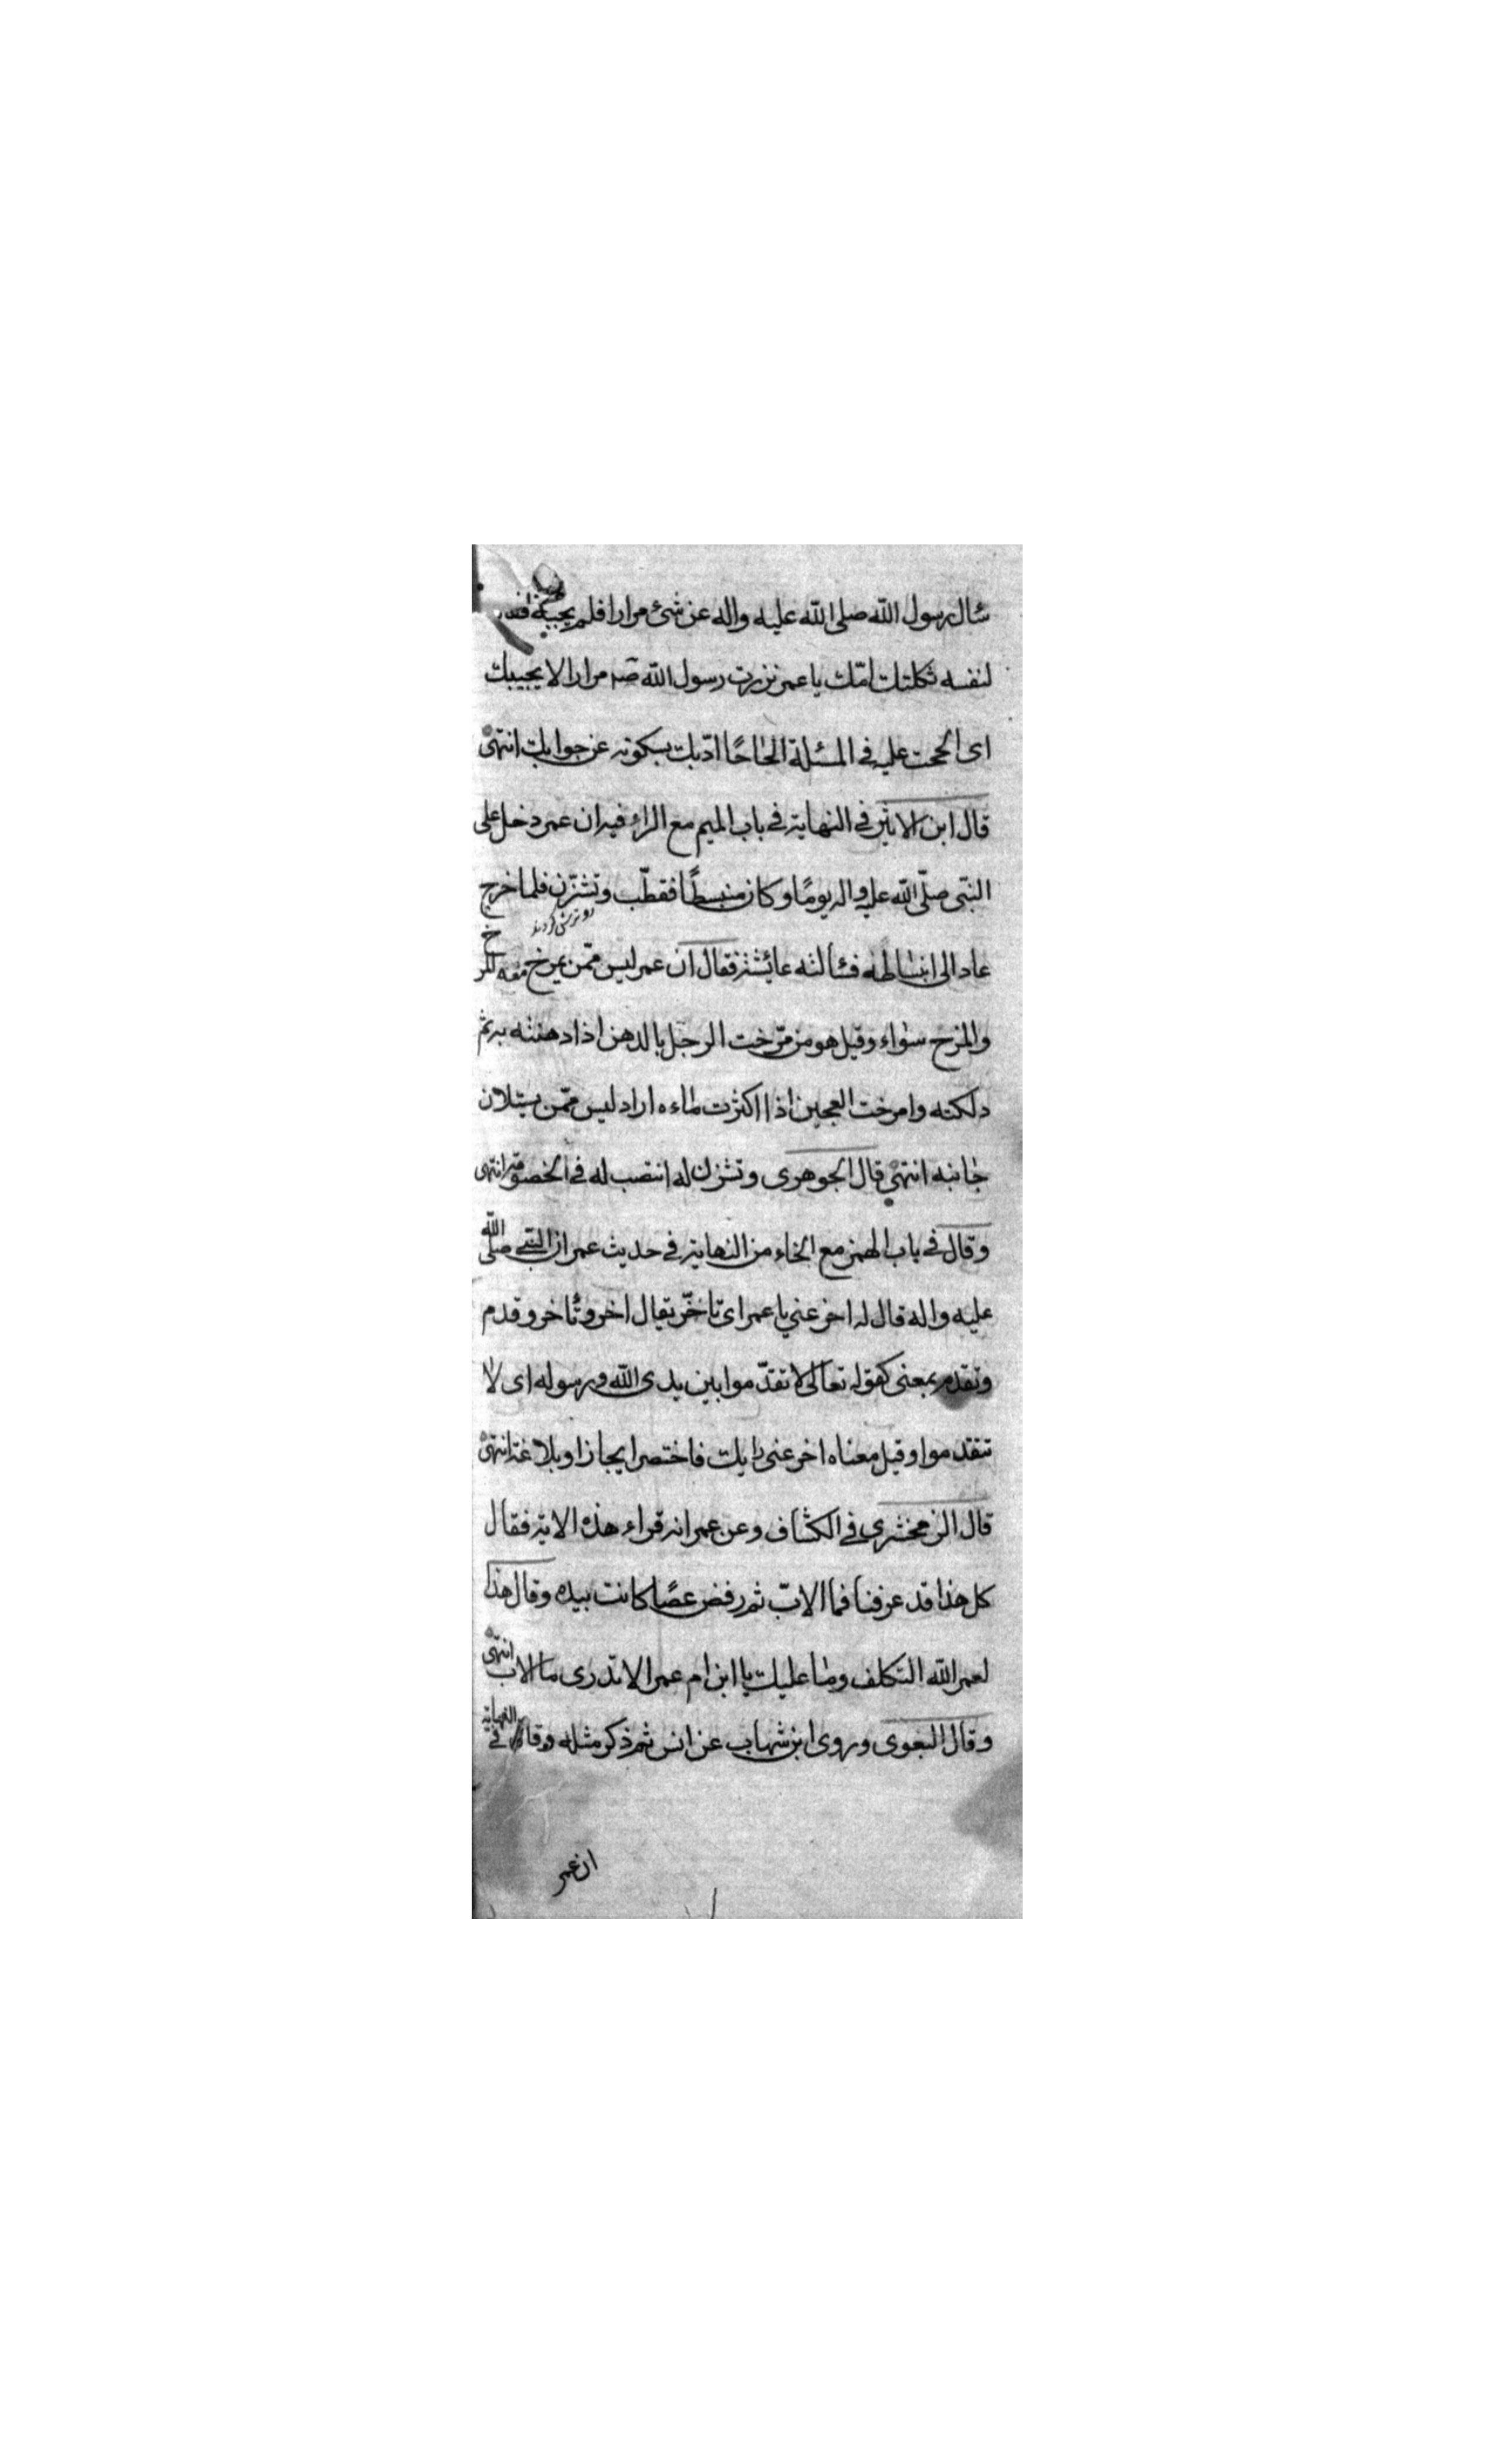 سأل رسول الله صلى الله عليه واله عن شئ مرارا فلم يجبه
لنفسه ثكلتك امّك يا عمر نزرت رسول الله صه مرارا لا يجيبك
اى الححت عليه في المسئلة الحاحًا ادّبك بسكوته عن جوابك انتهى
قال ابن الاثير في النهاية في باب الميم مع الراء فيه ان عمر دخل على
النبّى صلّى الله عليه واله يومًا وكان منبسطًا فقطّب وتشزّن فلما خرج
عاد الى انبساطه فسألته عائشة فقال ان عمر ليس ممّن يمرخ معه المرخ
والمزح سواء وقيل هو من مرّخت الرجل بالدهن اذا دهنته به ثم
دلكته وامرخت العجين اذا اكثرت ماءه اراد ليس ممّن يستلان
جانبه انتهى قال الجوهرى وتشزن له انتصب له في الخصومة انتهى
وقال في باب الهمز مع الخاء من النهاية في حديث عمر ان النبّى صلى الله
عليه واله قال له اخر عني يا عمر اى تاخّر يقال اخر وتأخر وقدم
وتقدم بمعنى كقوله تعالى لا تقدّموا بين يدى الله ورسوله اى لا
تتقدموا وقيل معناه اخر عنى رايك فاختصر ايجازا وبلاغة انتهى
قال الزمخشرى في الكشاف وعن عمر انه قراء هذه الاية فقال
كل هذا قد عرفنا فما الابّ ثم رفض عصًا كانت بيده وقال هذا
لعمر الله التكلف وما عليك يا ابن ام عمر الا تدرى ما الاب انتهى
وقال البغوى وروى ابن شهاب عن انس ثم ذكر مثله وقال في النهاية
ان عمر